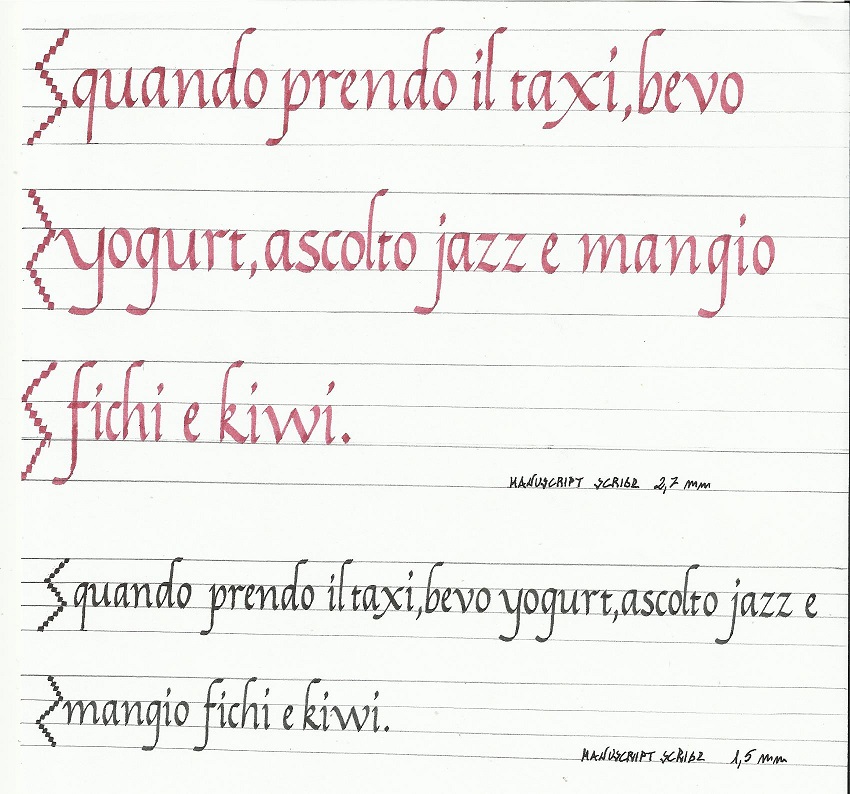 quando prendo il taxi, bevo
yogurt, ascolto jazz e mangio
fichi e kiwi.
MANUSCRIPT SCRIBE 2,7 mm
quando prendo il taxi, bevo yogurt, ascolto jazz e
mangio fichi e kiwi.
MANUSCRIPT SCRIBE 1,5 mm